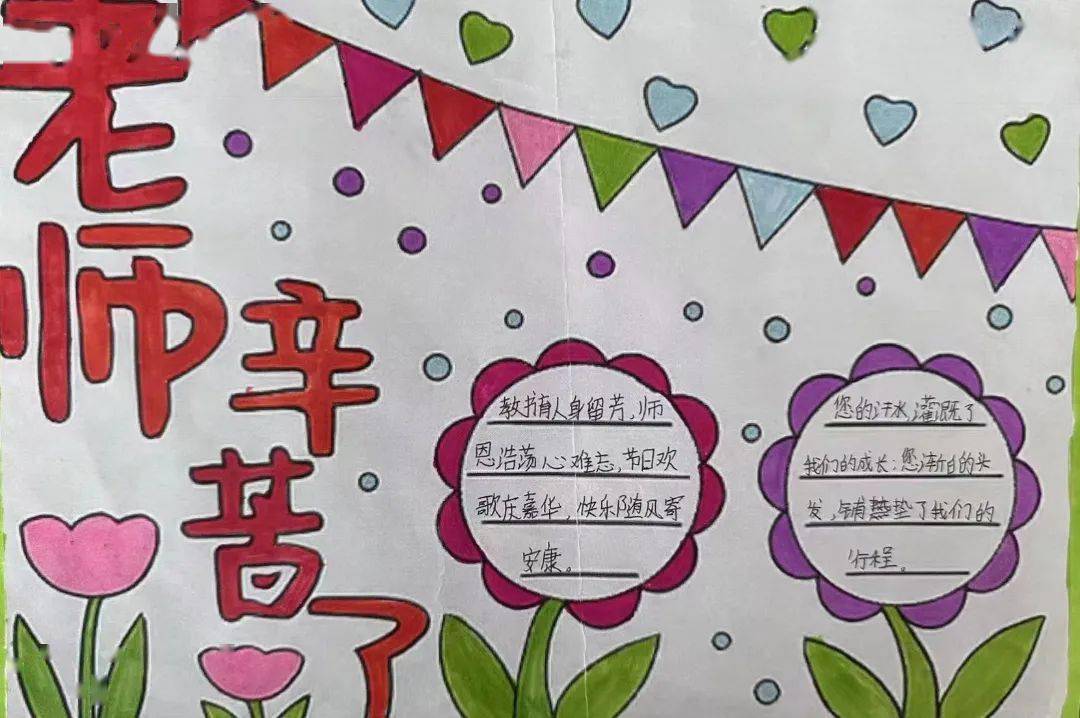 老师
辛苦了
教书育人身留芳,师
恩浩荡心难忘,节日欢
歌庆嘉华,快乐随风寄
安康。
您的汗水,灌既了
我们的成长;您渐白的头
发,铺垫了我们的
行程。